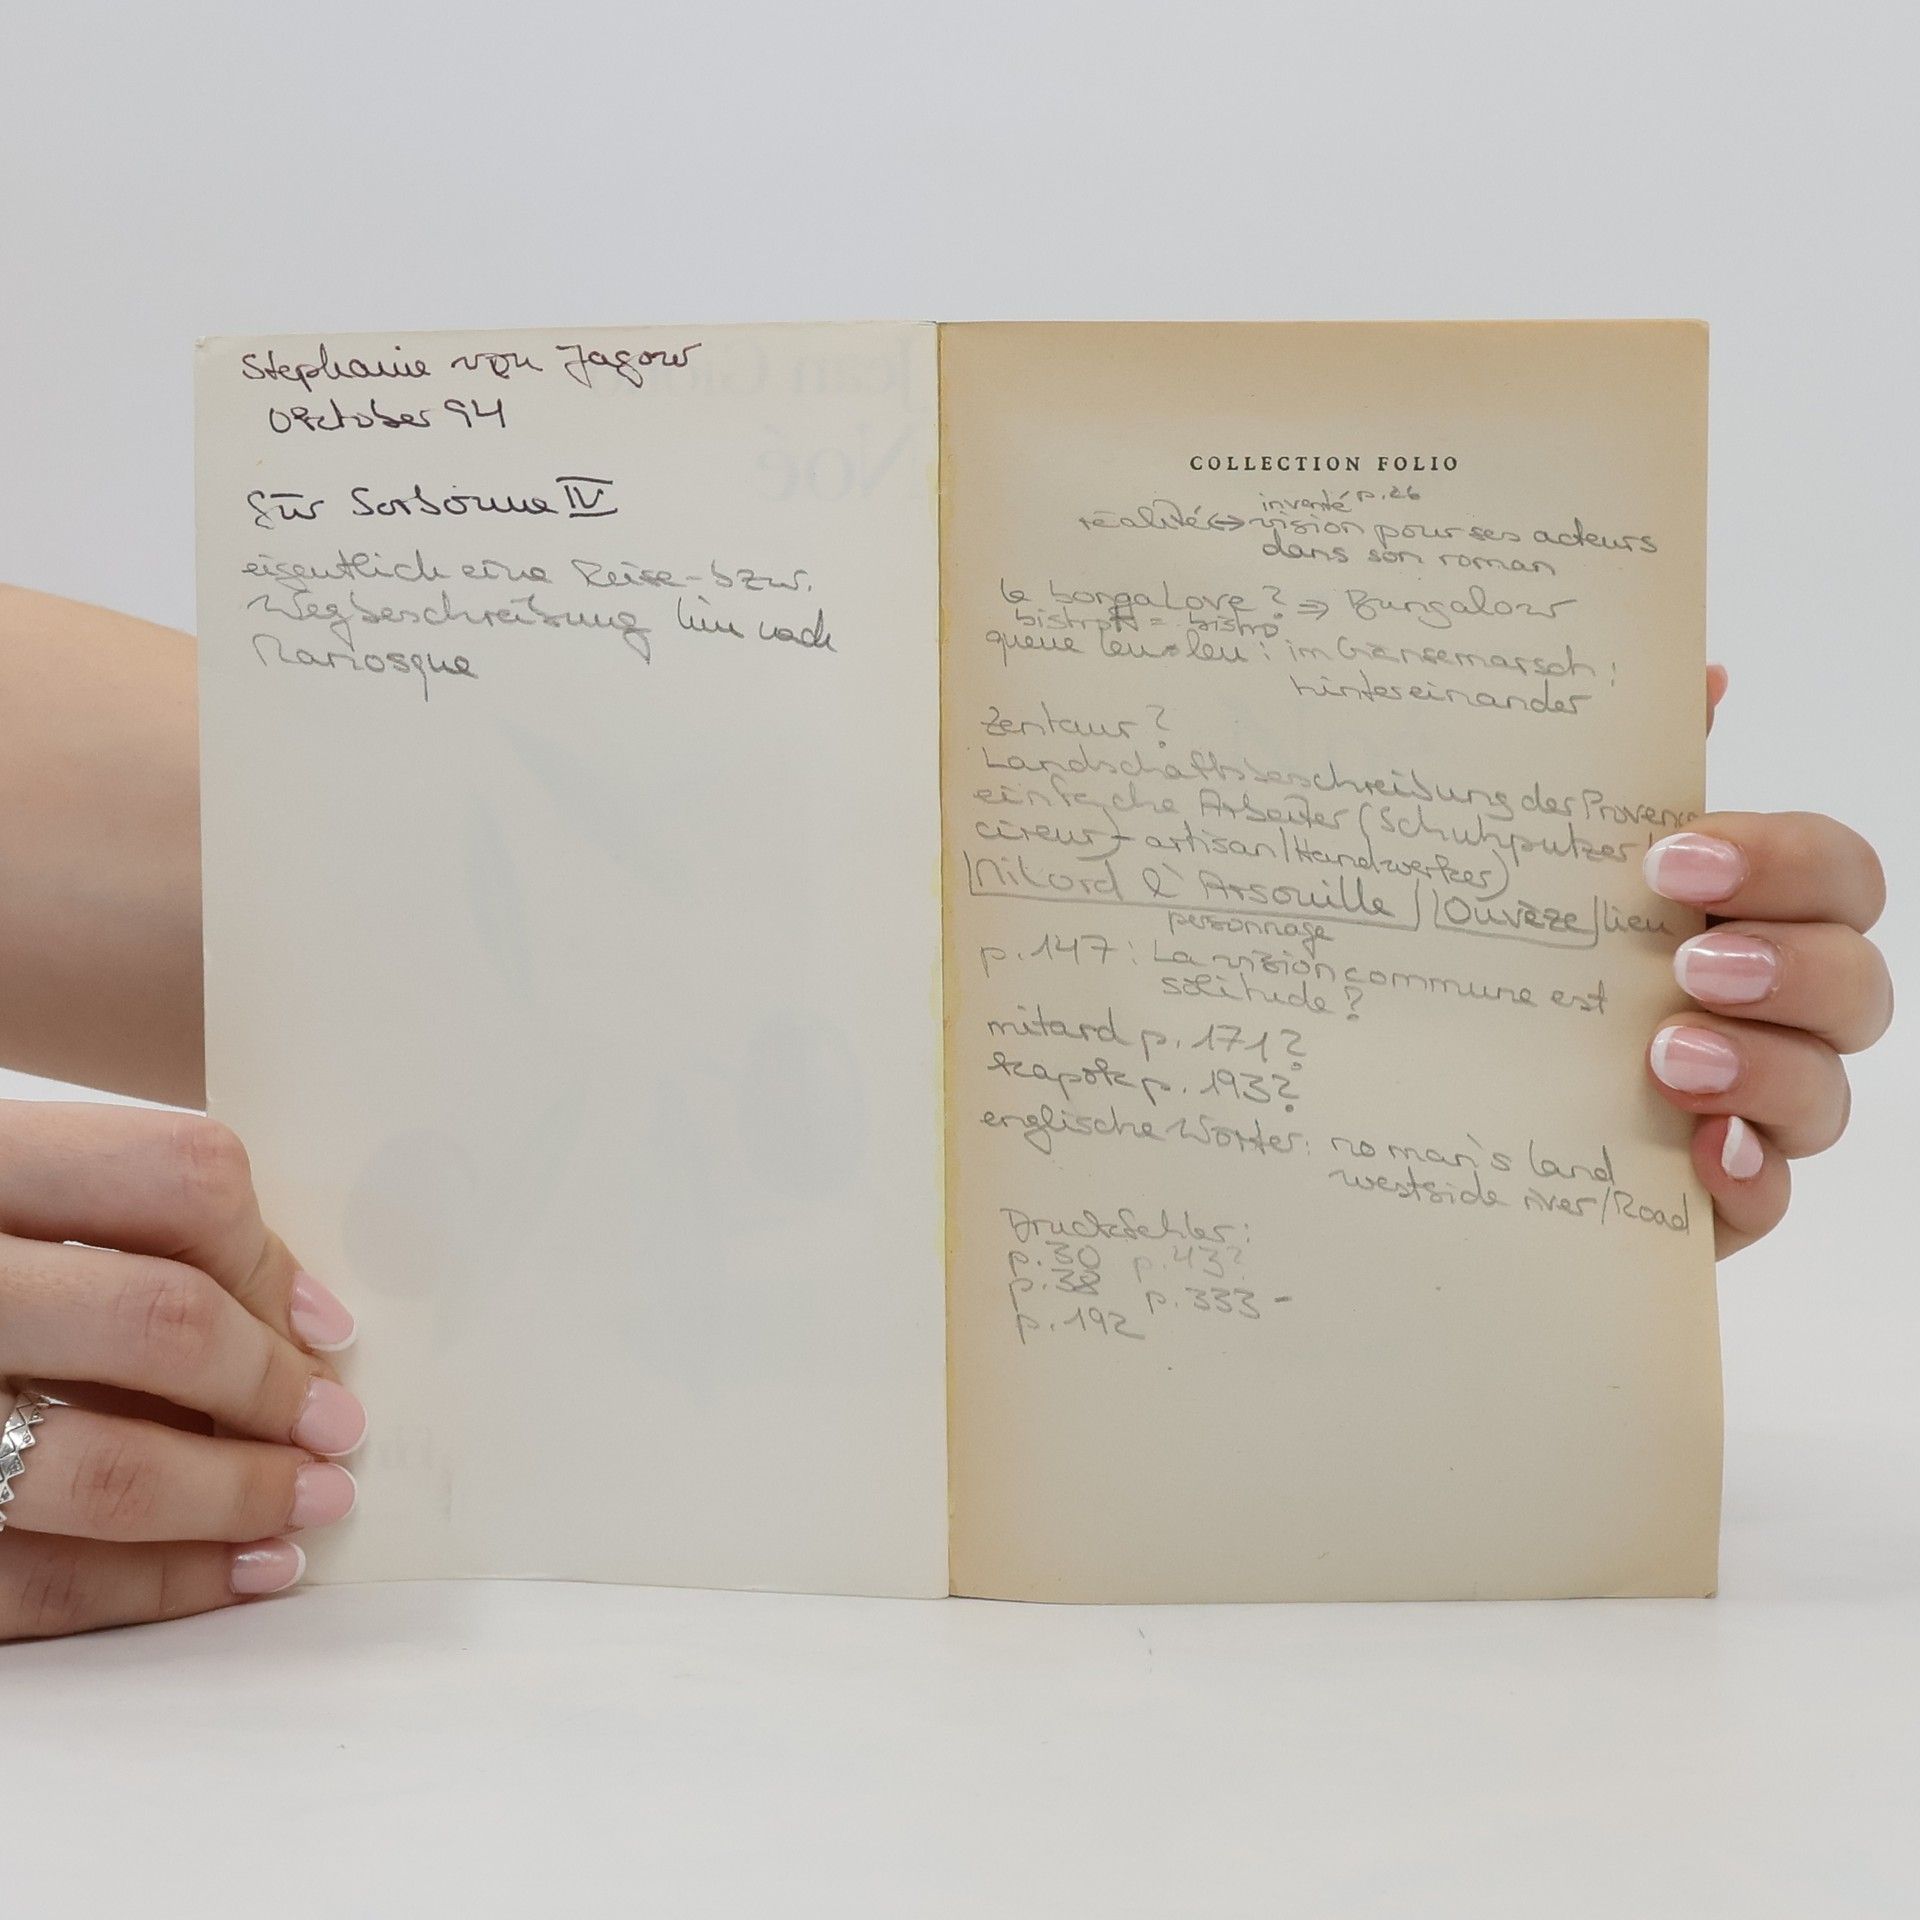 Stephanie von Jagow
Oktober 94
für Sorbonne IV
eigentlich eine Reise- bzw.
Wegbeschreibung hin nach
Manosque
COLLECTION FOLIO
inventé p. 26
réalité ⇔ vision pour ses acteurs
dans son roman
le borgalove? ⇒ Bungalow
= bistro
queue leu leu: im Gänsemarsch;
hintereinander
Zentaur?
Landschaftsbeschreibung der Provence
einfache Arbeiter (Schuhputzer
cireur) – artisan/Handwerker)
Milord l'Arsouille / Ouvèze lieu
personnage
p. 147: La vision commune est
solitude?
mitard p. 171?
kapok p. 193?
englische Wörter: no man's land
westside river/Road
Druckfehler:
p. 30 p. 43?
p. 38
p. 333 -
p. 192
Jean Giono
Noé